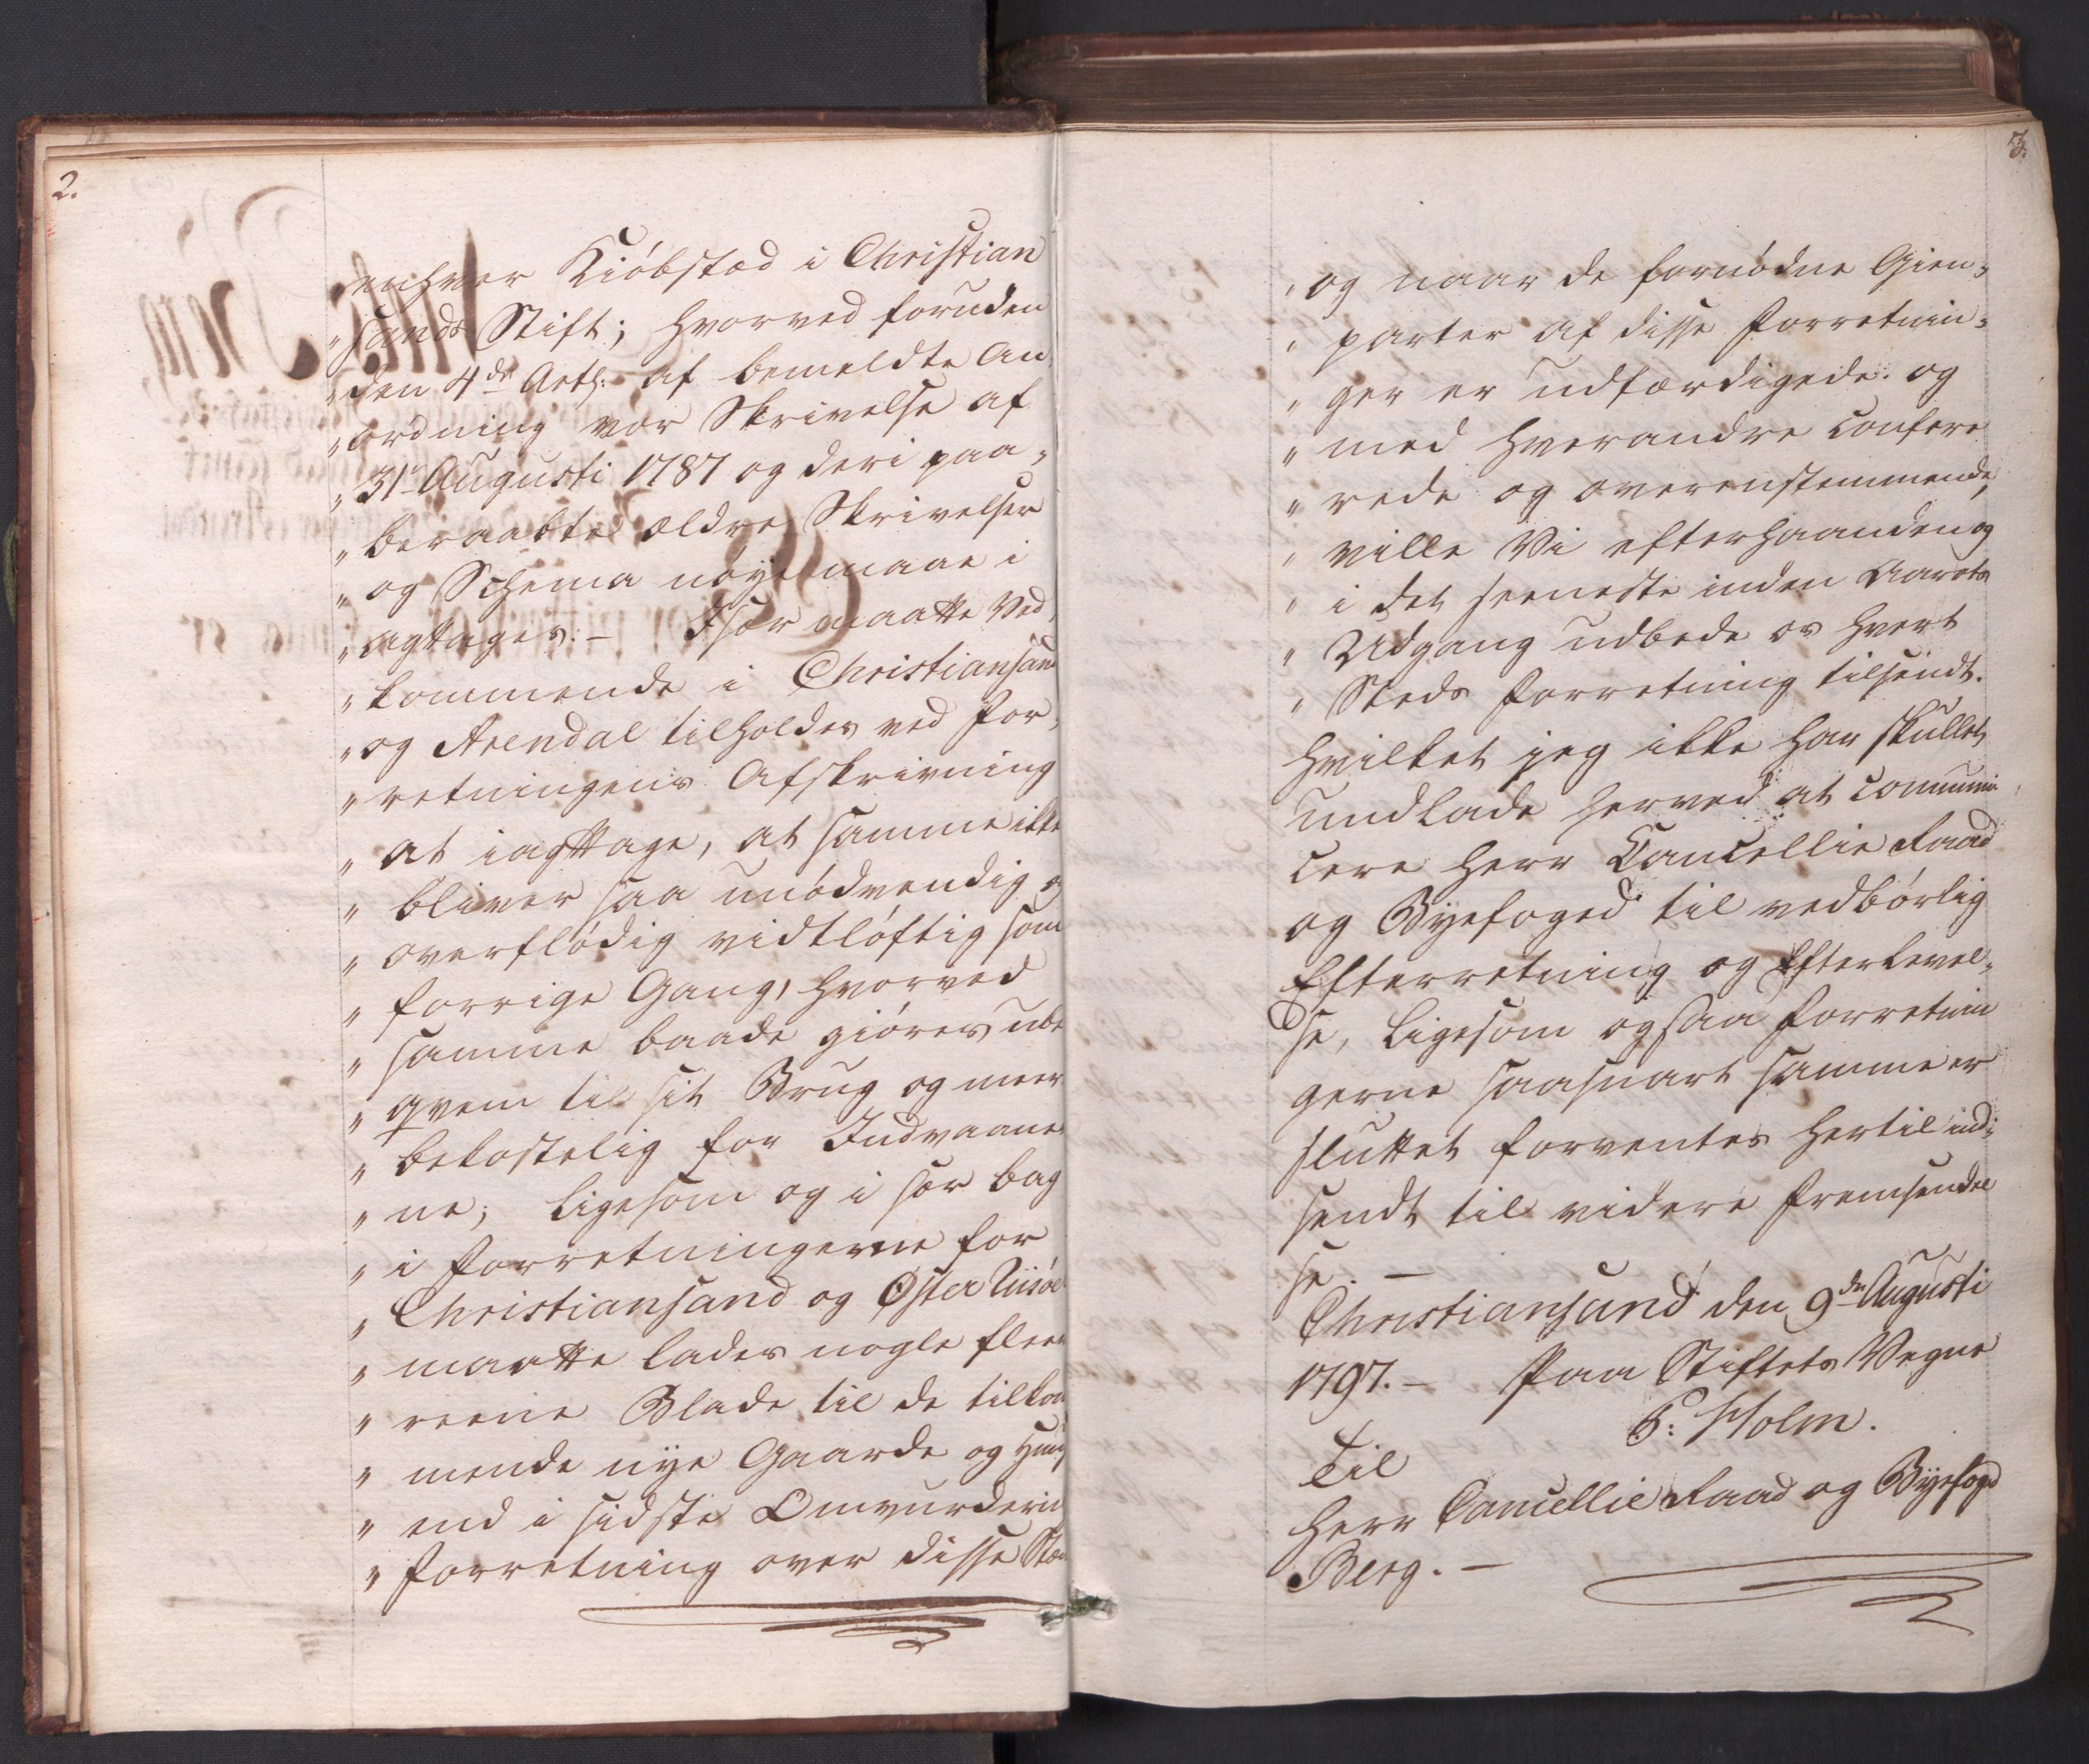 2.
enhver Kiøbstad i Christian
„ sands Stift; hvorved foruden
„ den 4de Artl: af bemeldte An„
„ ordning vor Skrivelse af
„ 31te Augusti 1787 og deri paa„
„ beraabte ældre Skrivelser
„ og Schema nøye maae i
„ agttages. – Især maatte Ved„
„ kommende i Christiansand
„ og Arendal tilholdes ved For„
„ retningens Afskrivning
„ at iagttage, at samme ikke
„ bliver saa unødvendig og
„ overflødig vidtløftig som
„ forrige Gang, hvorved
„ samme baade giøres ube
„ qvem til sit Brug og meer
„ bekostelig for Indvaaner
„ ne; ligesom og i sær bag
„ i Forretningerne for
„ Christiansand og Øster Riisøer
„ maatte lades nogle fleere
„ reene Blade til de tilkom
„ mende nye Gaarde og Huuse
„ end i sidste Omvurderings
„ Forretning over disse Stæder
3.
„ og naar de fornødne Gien„
„ parter af disse Forretnin„
„ ger er udfærdigede og
„ med hverandre confere
„ rede og overenstemmende,
„ ville Vi efterhaanden og
„ i det seeneste inden Aarets
„ Udgang udbede os hvert
„ Steds Forretning tilsendt.
Hvilket jeg ikke har skullet
undlade herved at communi„
cere Herr Cancellie Raad
og Byefoged til vedbørlig
Efterretning og Efterlevel„
se, ligesom ogsaa Forretnin
gerne saasnart samme er
sluttet forventes hertil ind„
sendt til videre Fremsendel
se. –
Christiansand den 9de Augusti
1797. – Paa Stiftets Vegne
P: Holm.
Til
Herr Cancellie Raad og Byefoged
Berg. –